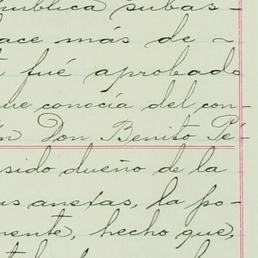 ública subas-
ace más de -
fué aprobado
ue conocía del con-
n Don Benito Pé-
sido dueño de la
us anexas, la po-
mente, hecho que,